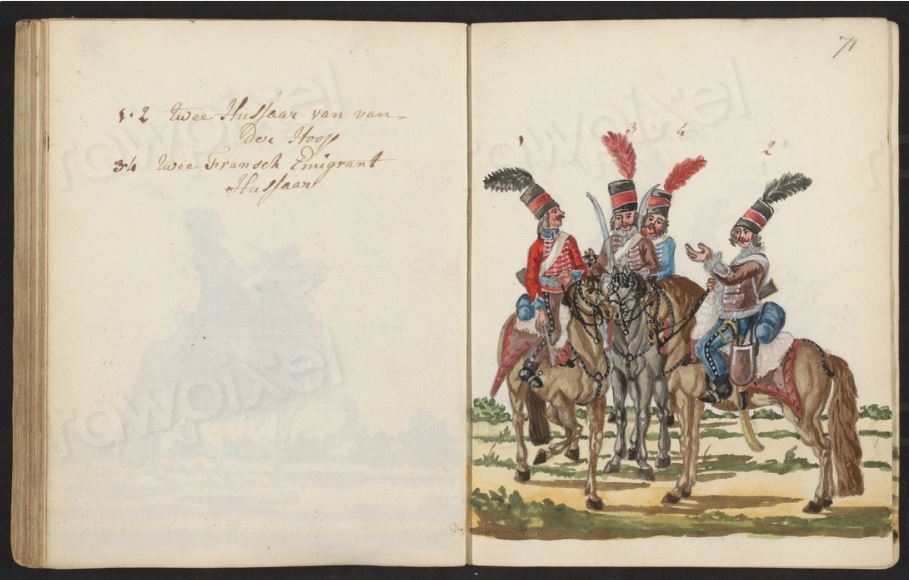 1·2 twee Hussaar van van
Der Hoop
3·4 twee Fransch Emigrant
Hussaar
71
1 3 4 2
rawpixel
rawpixel
rawpixel
rawpixel